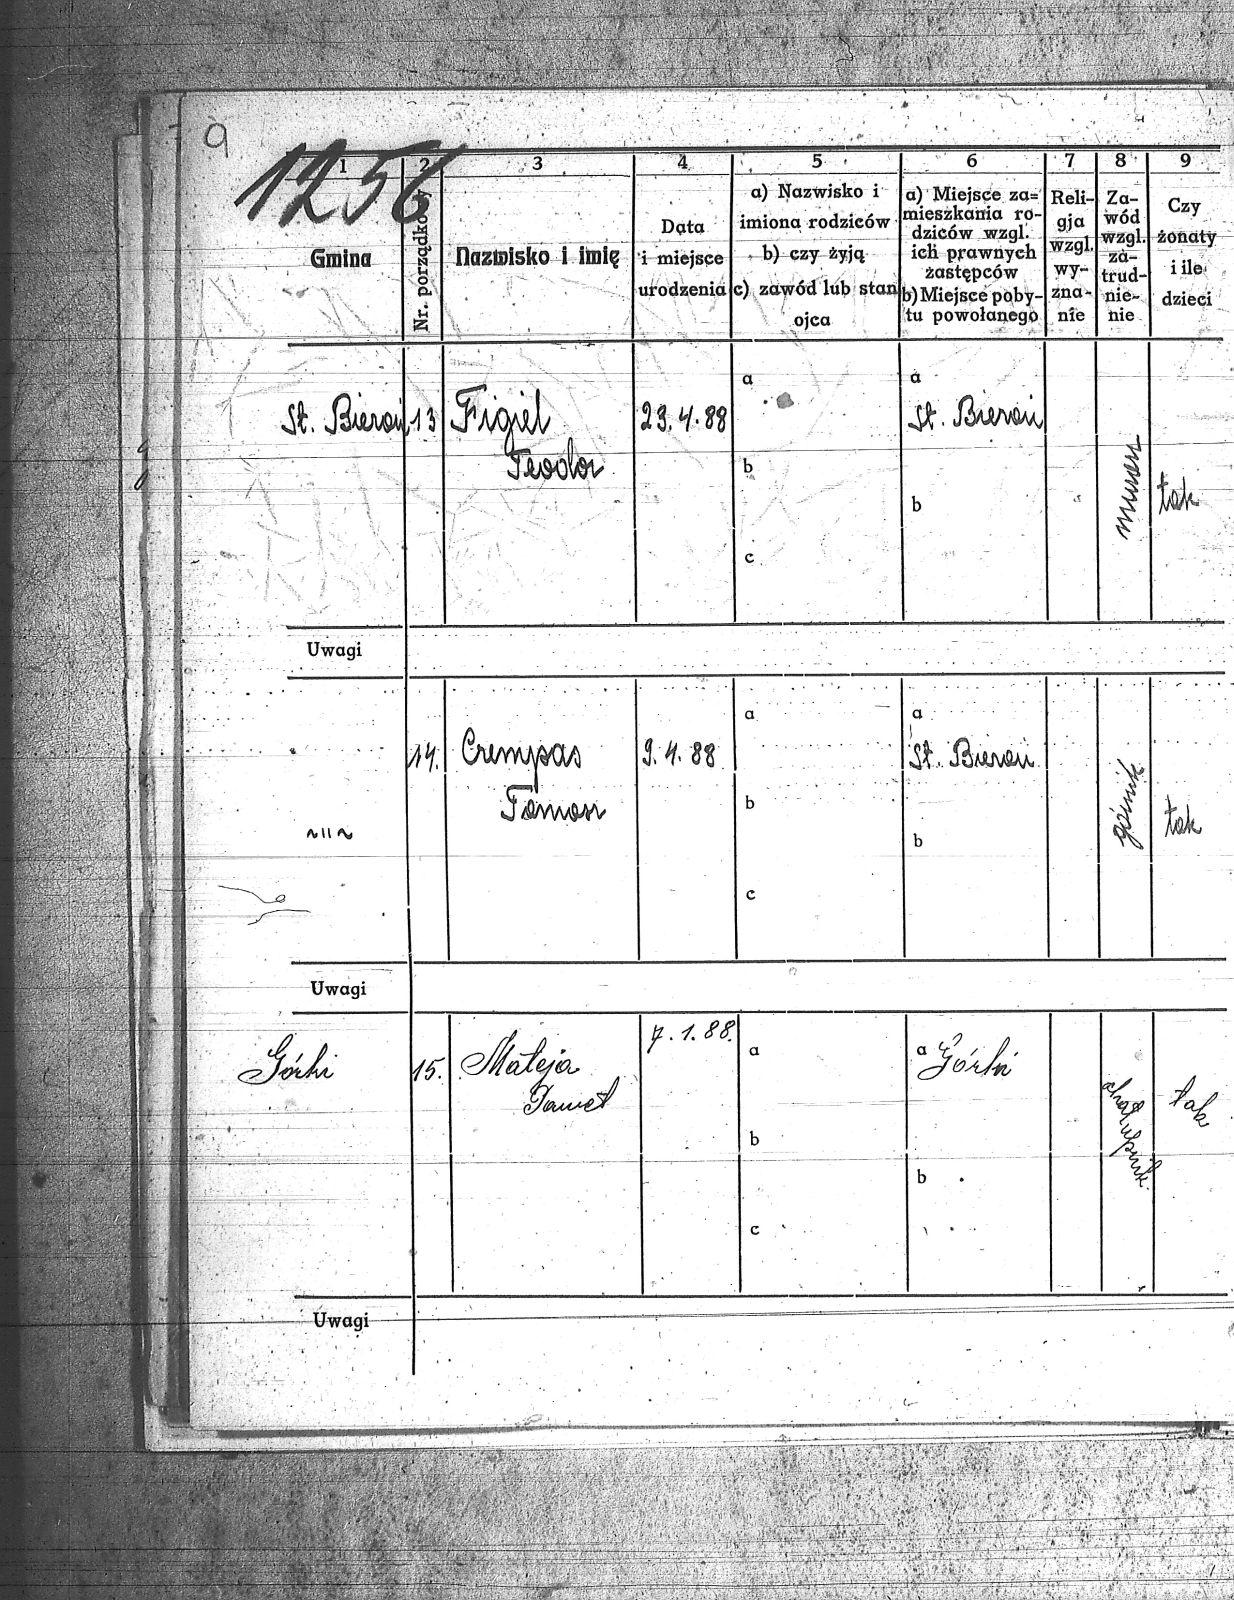 9
1256
1 2 3 4 5 6 7 8 9
Gmina
Nr. porządkowy
Nazwisko i imię
Data
i miejsce
urodzenia
a) Nazwisko i
imiona rodziców
b) czy żyją
c) zawód lub stan
ojca
a) Miejsce za=
mieszkania ro-
dziców wzgl.
ich prawnych
zastępców
b) Miejsce poby-
tu powołanego
Reli-
gja
wzgl.
wy-
zna-
nie
Za-
wód
wzgl.
za-
trud-
nie-
nie
Czy
żonaty
i ile
dzieci
St. Bieruń 13 Figiel 23.4.88 a a
St. Bieruń
Teodor b
b
murarz
tak
c
Uwagi
a a
14. Crempas 9.4.88 St. Bieruń
Tomasz b
~"~
b
górnik
tak
c
Uwagi
Górki 15. Mateja 7.1.88. a a Górki
Paweł
chałupnik.
tak
b
b
c
Uwagi